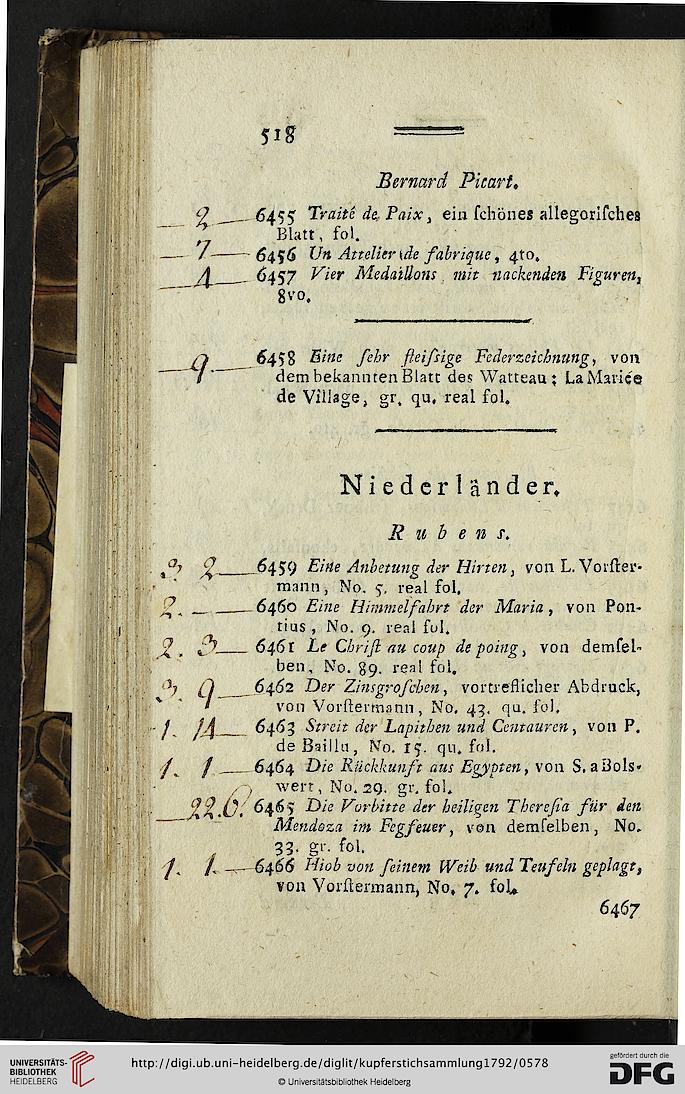 518
Bernard Picart.
2 — 6455 Traité de Paix, ein ſchönes allegoriſches
Blatt, fol.
— 7 — 6456 Un Attelier de fabrique, 4to.
— 4 — 6457 Vier Medaillons mit nackenden Figuren,
8vo.
— 9 — 6458 Eine ſehr fleiſsige Federzeichnung, von
dem bekannten Blatt des Watteau: La Mariée
de Village, gr. qu. real fol.
Niederländer.
Rubens.
3. 2 — 6459 Eine Anbetung der Hirten, von L. Vorſter-
mann, No. 5. real fol.
2. — — 6460 Eine Himmelfahrt der Maria, von Pon-
tius, No. 9. real fol.
2. 3 — 6461 Le Chriſt au coup de poing, von demſel-
ben, No. 89. real fol.
3. 9 — 6462 Der Zinsgroſchen, vortreflicher Abdruck,
von Vorſtermann, No. 43. qu. fol.
1. 14 — 6463 Streit der Lapithen und Centauren, von P.
de Baillu, No. 15. qu. fol.
1. 1 — 6464 Die Rückkunft aus Egypten, von S. a Bols-
wert, No. 29. gr. fol.
— 22. 6. 6465 Die Vorbitte der heiligen Thereſia für den
Mendoza im Fegfeuer, von demſelben, No.
33. gr. fol.
1. 1. — 6466 Hiob von ſeinem Weib und Teufeln geplagt,
von Vorſtermann, No. 7. fol.
6467
UNIVERSITÄTS-
BIBLIOTHEK
HEIDELBERG
http://digi.ub.uni-heidelberg.de/diglit/kupferstichsammlung1792/0578
© Universitätsbibliothek Heidelberg
gefördert durch die
DFG